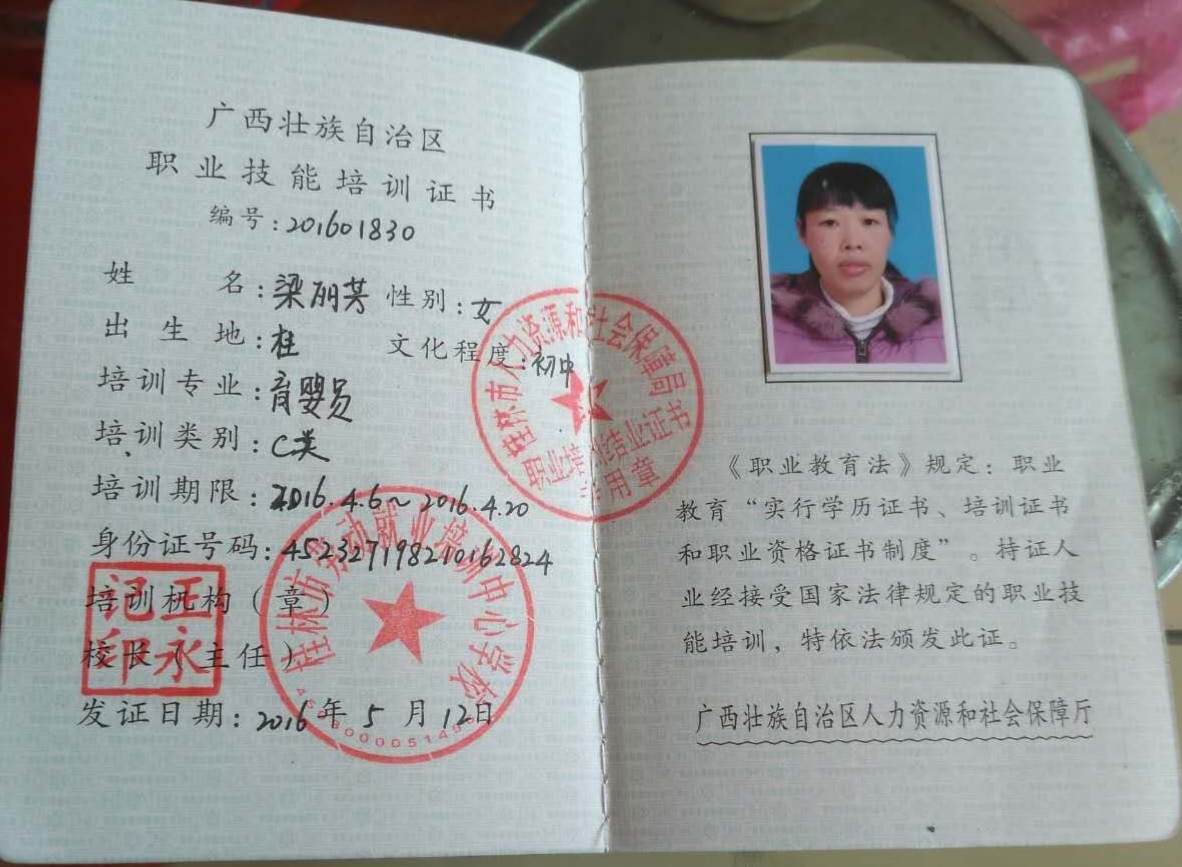 广西壮族自治区
职业技能培训证书
编号:201601830
姓名:梁丽芳 性别:女
出生地:桂 文化程度:初中
培训专业:育婴员
培训类别:C类
培训期限:2016.4.6~2016.4.20
身份证号码:452327198210162824
培训机构(章)
校长(主任)
发证日期:2016年5月12日
桂林市人力资源和社会保障局
职业培训结业证书
专用章
就业培训中心学校
《职业教育法》规定:职业
教育“实行学历证书、培训证书
和职业资格证书制度”。持证人
业经接受国家法律规定的职业技
能培训,特依法颁发此证。
广西壮族自治区人力资源和社会保障厅